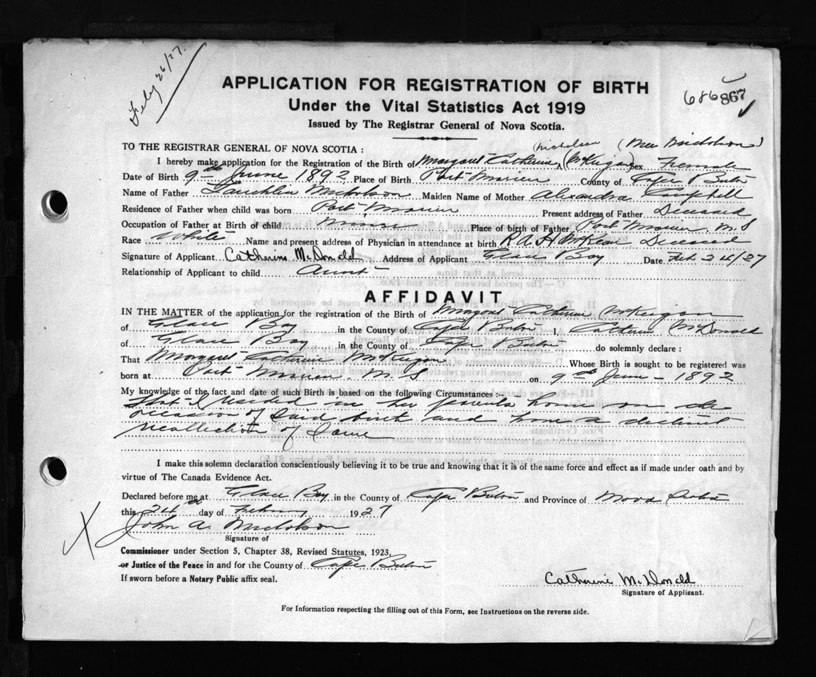 Feby 26/27.
APPLICATION FOR REGISTRATION OF BIRTH
Under the Vital Statistics Act 1919
Issued by The Registrar General of Nova Scotia.
686 867
TO THE REGISTRAR GENERAL OF NOVA SCOTIA: Nicholson (Nee Nicholson)
I hereby make application for the Registration of the Birth of Margaret Catherine (McKeigan) Sex Female
Date of Birth 9th June 1892 Place of Birth Port Morien County of Cape Breton
Name of Father Lauchlin Nicholson Maiden Name of Mother Alexandra Campbell
Residence of Father when child was born Port Morien Present address of Father Deceased
Occupation of Father at Birth of child Miner Place of birth of Father Port Morien, N.S
Race White Name and present address of Physician in attendance at birth R.A.H. McKeen Deceased
Signature of Applicant Catherine McDonald Address of Applicant Glace Bay Date Feb. 24/27
Relationship of Applicant to child Aunt
AFFIDAVIT
IN THE MATTER of the application for the registration of the Birth of Margaret Catherine McKeigan
of Glace Bay in the County of Cape Breton I, Catherine McDonald
of Glace Bay in the County of Cape Breton do solemnly declare:
That Margaret Catherine McKeigan Whose Birth is sought to be registered was
born at Port Morien, N.S on 9th June - 1892
My knowledge of the fact and date of such Birth is based on the following Circumstances :-
That I resided in her parents home on the
occasion of said birth and have a distinct
recollection of same
I make this solemn declaration conscientiously believing it to be true and knowing that it is of the same force and effect as if made under oath and by
virtue of The Canada Evidence Act.
Declared before me at Glace Bay in the County of Cape Breton and Province of Nova Scotia
this 24th day of February 1927
John A. Nicholson
Signature of
Commissioner under Section 5, Chapter 38, Revised Statutes, 1923,
or Justice of the Peace in and for the County of Cape Breton
If sworn before a Notary Public affix seal.
Catherine McDonald
Signature of Applicant.
For Information respecting the filling out of this Form, see Instructions on the reverse side.